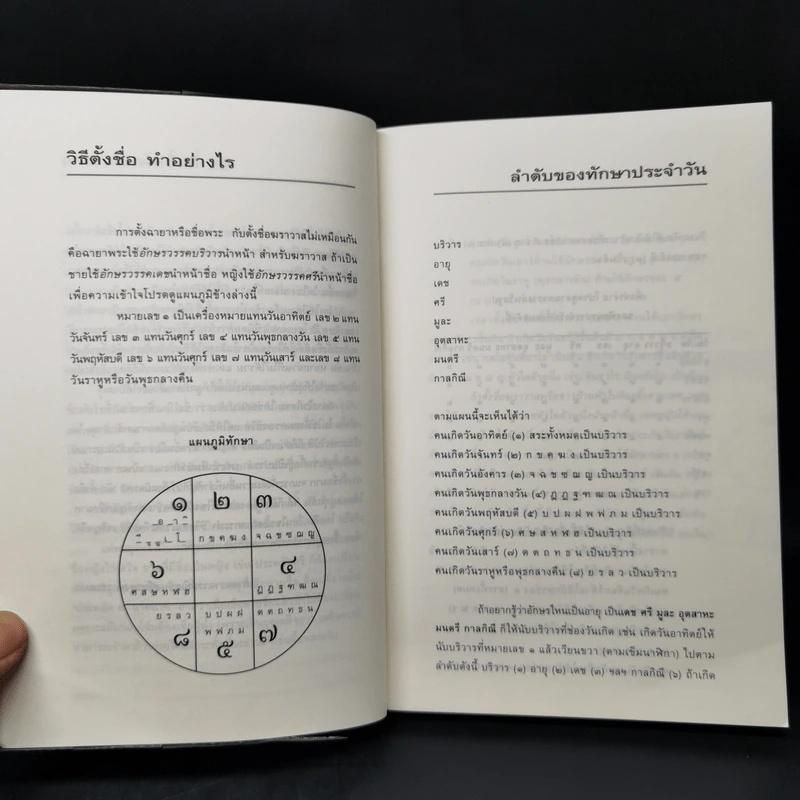 วิธีตั้งชื่อ ทำอย่างไร
การตั้งฉายาหรือชื่อพระ กับตั้งชื่อฆราวาสไม่เหมือนกัน
คือฉายาพระใช้อักษรวรรคบริวารนำหน้า สำหรับฆราวาส ถ้าเป็น
ชายใช้อักษรวรรคเดชนำหน้าชื่อ หญิงใช้อักษรวรรคศรีนำหน้าชื่อ
เพื่อความเข้าใจโปรดดูแผนภูมิข้างล่างนี้
หมายเลข ๑ เป็นเครื่องหมายแทนวันอาทิตย์ เลข ๒ แทน
วันจันทร์ เลข ๓ แทนวันศุกร์ เลข ๔ แทนวันพุธกลางวัน เลข ๕ แทน
วันพฤหัสบดี เลข ๖ แทนวันศุกร์ เลข ๗ แทนวันเสาร์ และเลข ๘ แทน
วันราหูหรือวันพุธกลางคืน
แผนภูมิทักษา
๑ ๒ ๓
ก ข ค ฆ ง จ ฉ ช ซ ฌ ญ
๖ ๔
ศ ส ษ ห ฬ ฮ ฎ ฏ ฐ ฑ ฒ ณ
ย ร ล ว บ ป ผ ฝ ด ต ถ ท ธ น
พ ฟ ภ ม
๘ ๕ ๗
ลำดับของทักษาประจำวัน
บริวาร
อายุ
เดช
ศรี
มูละ
อุตสาหะ
มนตรี
กาลกิณี
ตามแผนนี้จะเห็นได้ว่า
คนเกิดวันอาทิตย์ (๑) สระทั้งหมดเป็นบริวาร
คนเกิดวันจันทร์ (๒) ก ข ค ฆ ง เป็นบริวาร
คนเกิดวันอังคาร (๓) จ ฉ ช ซ ฌ ญ เป็นบริวาร
คนเกิดวันพุธกลางวัน (๔) ฎ ฏ ฐ ฑ ฒ ณ เป็นบริวาร
คนเกิดวันพฤหัสบดี (๕) บ ป ผ ฝ พ ฟ ภ ม เป็นบริวาร
คนเกิดวันศุกร์ (๖) ศ ษ ส ห ฬ ฮ เป็นบริวาร
คนเกิดวันเสาร์ (๗) ด ต ถ ท ธ น เป็นบริวาร
คนเกิดวันราหูหรือพุธกลางคืน (๘) ย ร ล ว เป็นบริวาร
ถ้าอยากรู้ว่าอักษรไหนเป็นอายุ เป็นเดช ศรี มูละ อุตสาหะ
มนตรี กาลกิณี ก็ให้นับบริวารที่ช่องวันเกิด เช่น เกิดวันอาทิตย์ให้
นับบริวารที่หมายเลข ๑ แล้วเวียนขวา (ตามเข็มนาฬิกา) ไปตาม
ลำดับดังนี้ บริวาร (๑) อายุ (๒) เดช (๓) ฯลฯ กาลกิณี (๖) ถ้าเกิด